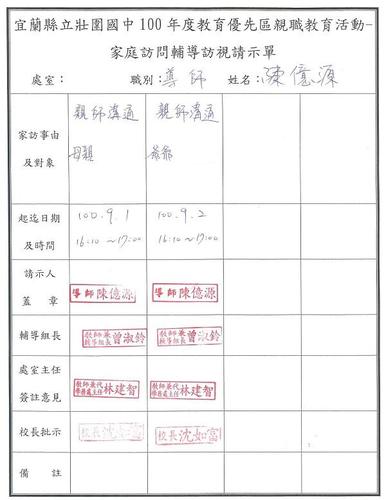 宜蘭縣立壯圍國中100年度教育優先區親職教育活動-
家庭訪問輔導訪視請示單
處室： 職別：導師 姓名：陳億源
家訪事由
及對象
親師溝通 親師溝通
母親 爺爺
起迄日期
及時間
100.9.1 100.9.2
16:10～17:00 16:10～17:00
請示人
蓋章
導師陳億源 導師陳億源
輔導組長
教師兼
輔導組長曾淑鈴 教師兼
輔導組長曾淑鈴
處室主任
簽註意見
教師兼代
學務處主任林建智 教師兼代
學務處主任林建智
校長批示
校長沈如富 校長沈如富
備註